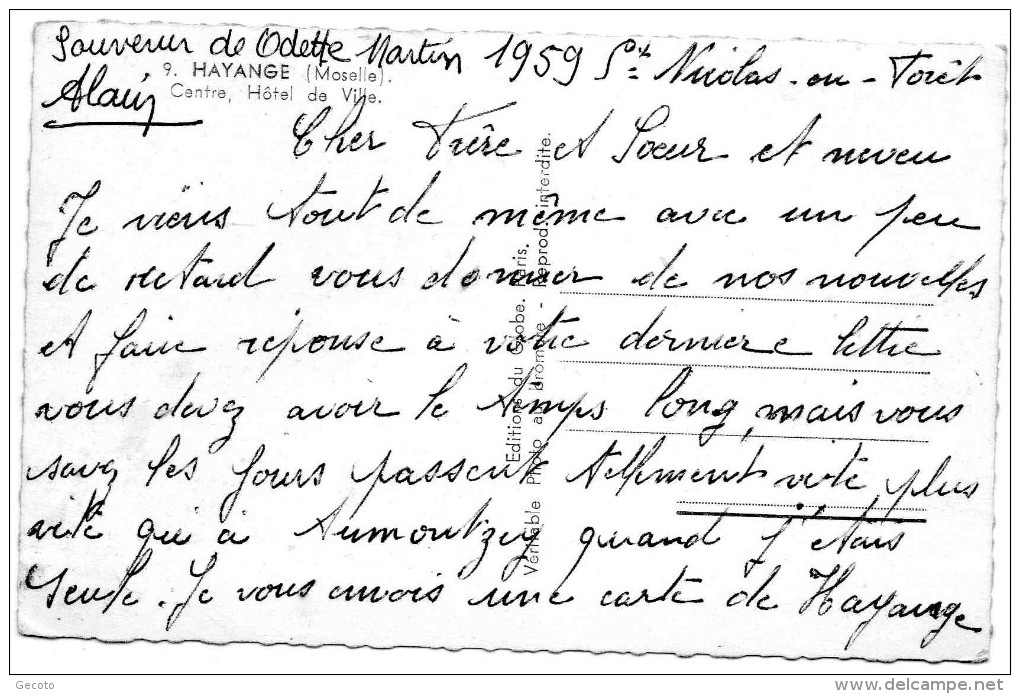 Souvenir de Odette Martin 1959 St Nicolas-en-Forêt
9. HAYANGE (Moselle).
Alain
Centre, Hôtel de Ville.
Cher Frère et Soeur et neveu
Je viens tout de même avec un peu
de retard vous donner de nos nouvelles
et faire réponse à votre dernière lettre
vous devez avoir le temps long, mais vous
savez les jours passent tellement vite, plus
vite qu'à Aumontzey quand j'étais
seule. Je vous envois une carte de Hayange
Editions du Globe. Paris.
Véritable Photo au bromure - Reprod. interdite.
Gecoto
www.delcampe.net